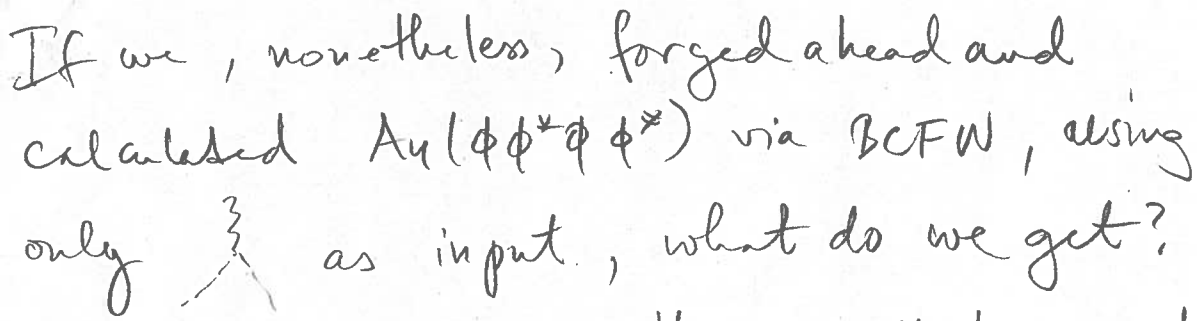 If we, nonetheless, forged ahead and
calculated A4(φφ*φφ*) via BCFW, using
only as input, what do we get?